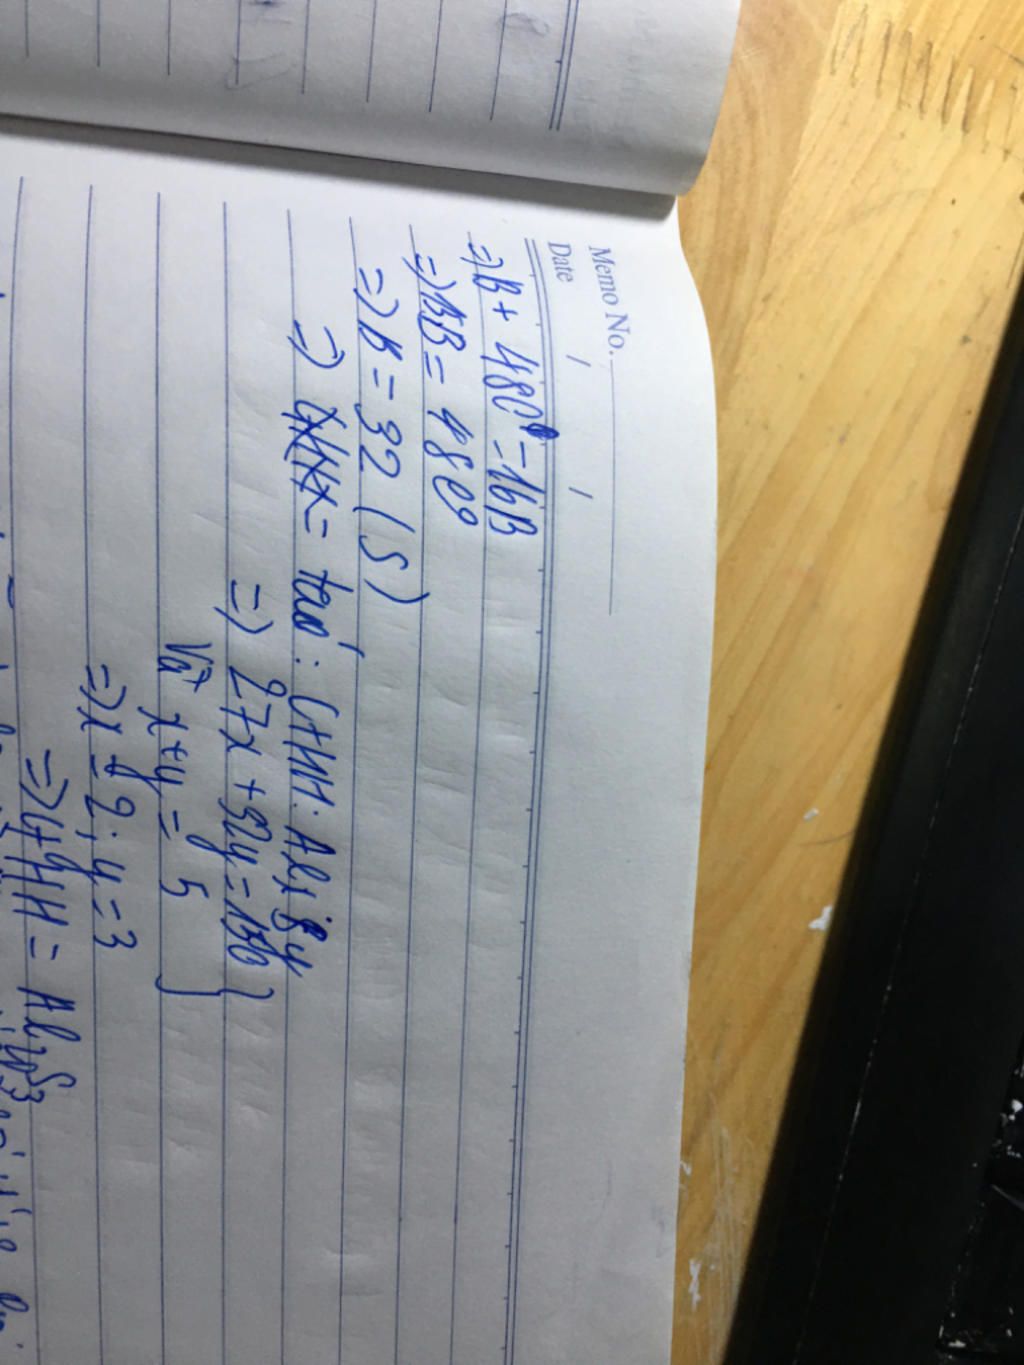 Memo No.
Date / /
=) B + 480 = 16B
=) 15B = 480
=) B = 32 (S)
=) có: CTHH: AlxSy
=) 27x + 32y = 150 }
Và x+y = 5 }
=) x = 2; y = 3
=) CTHH = Al2S3